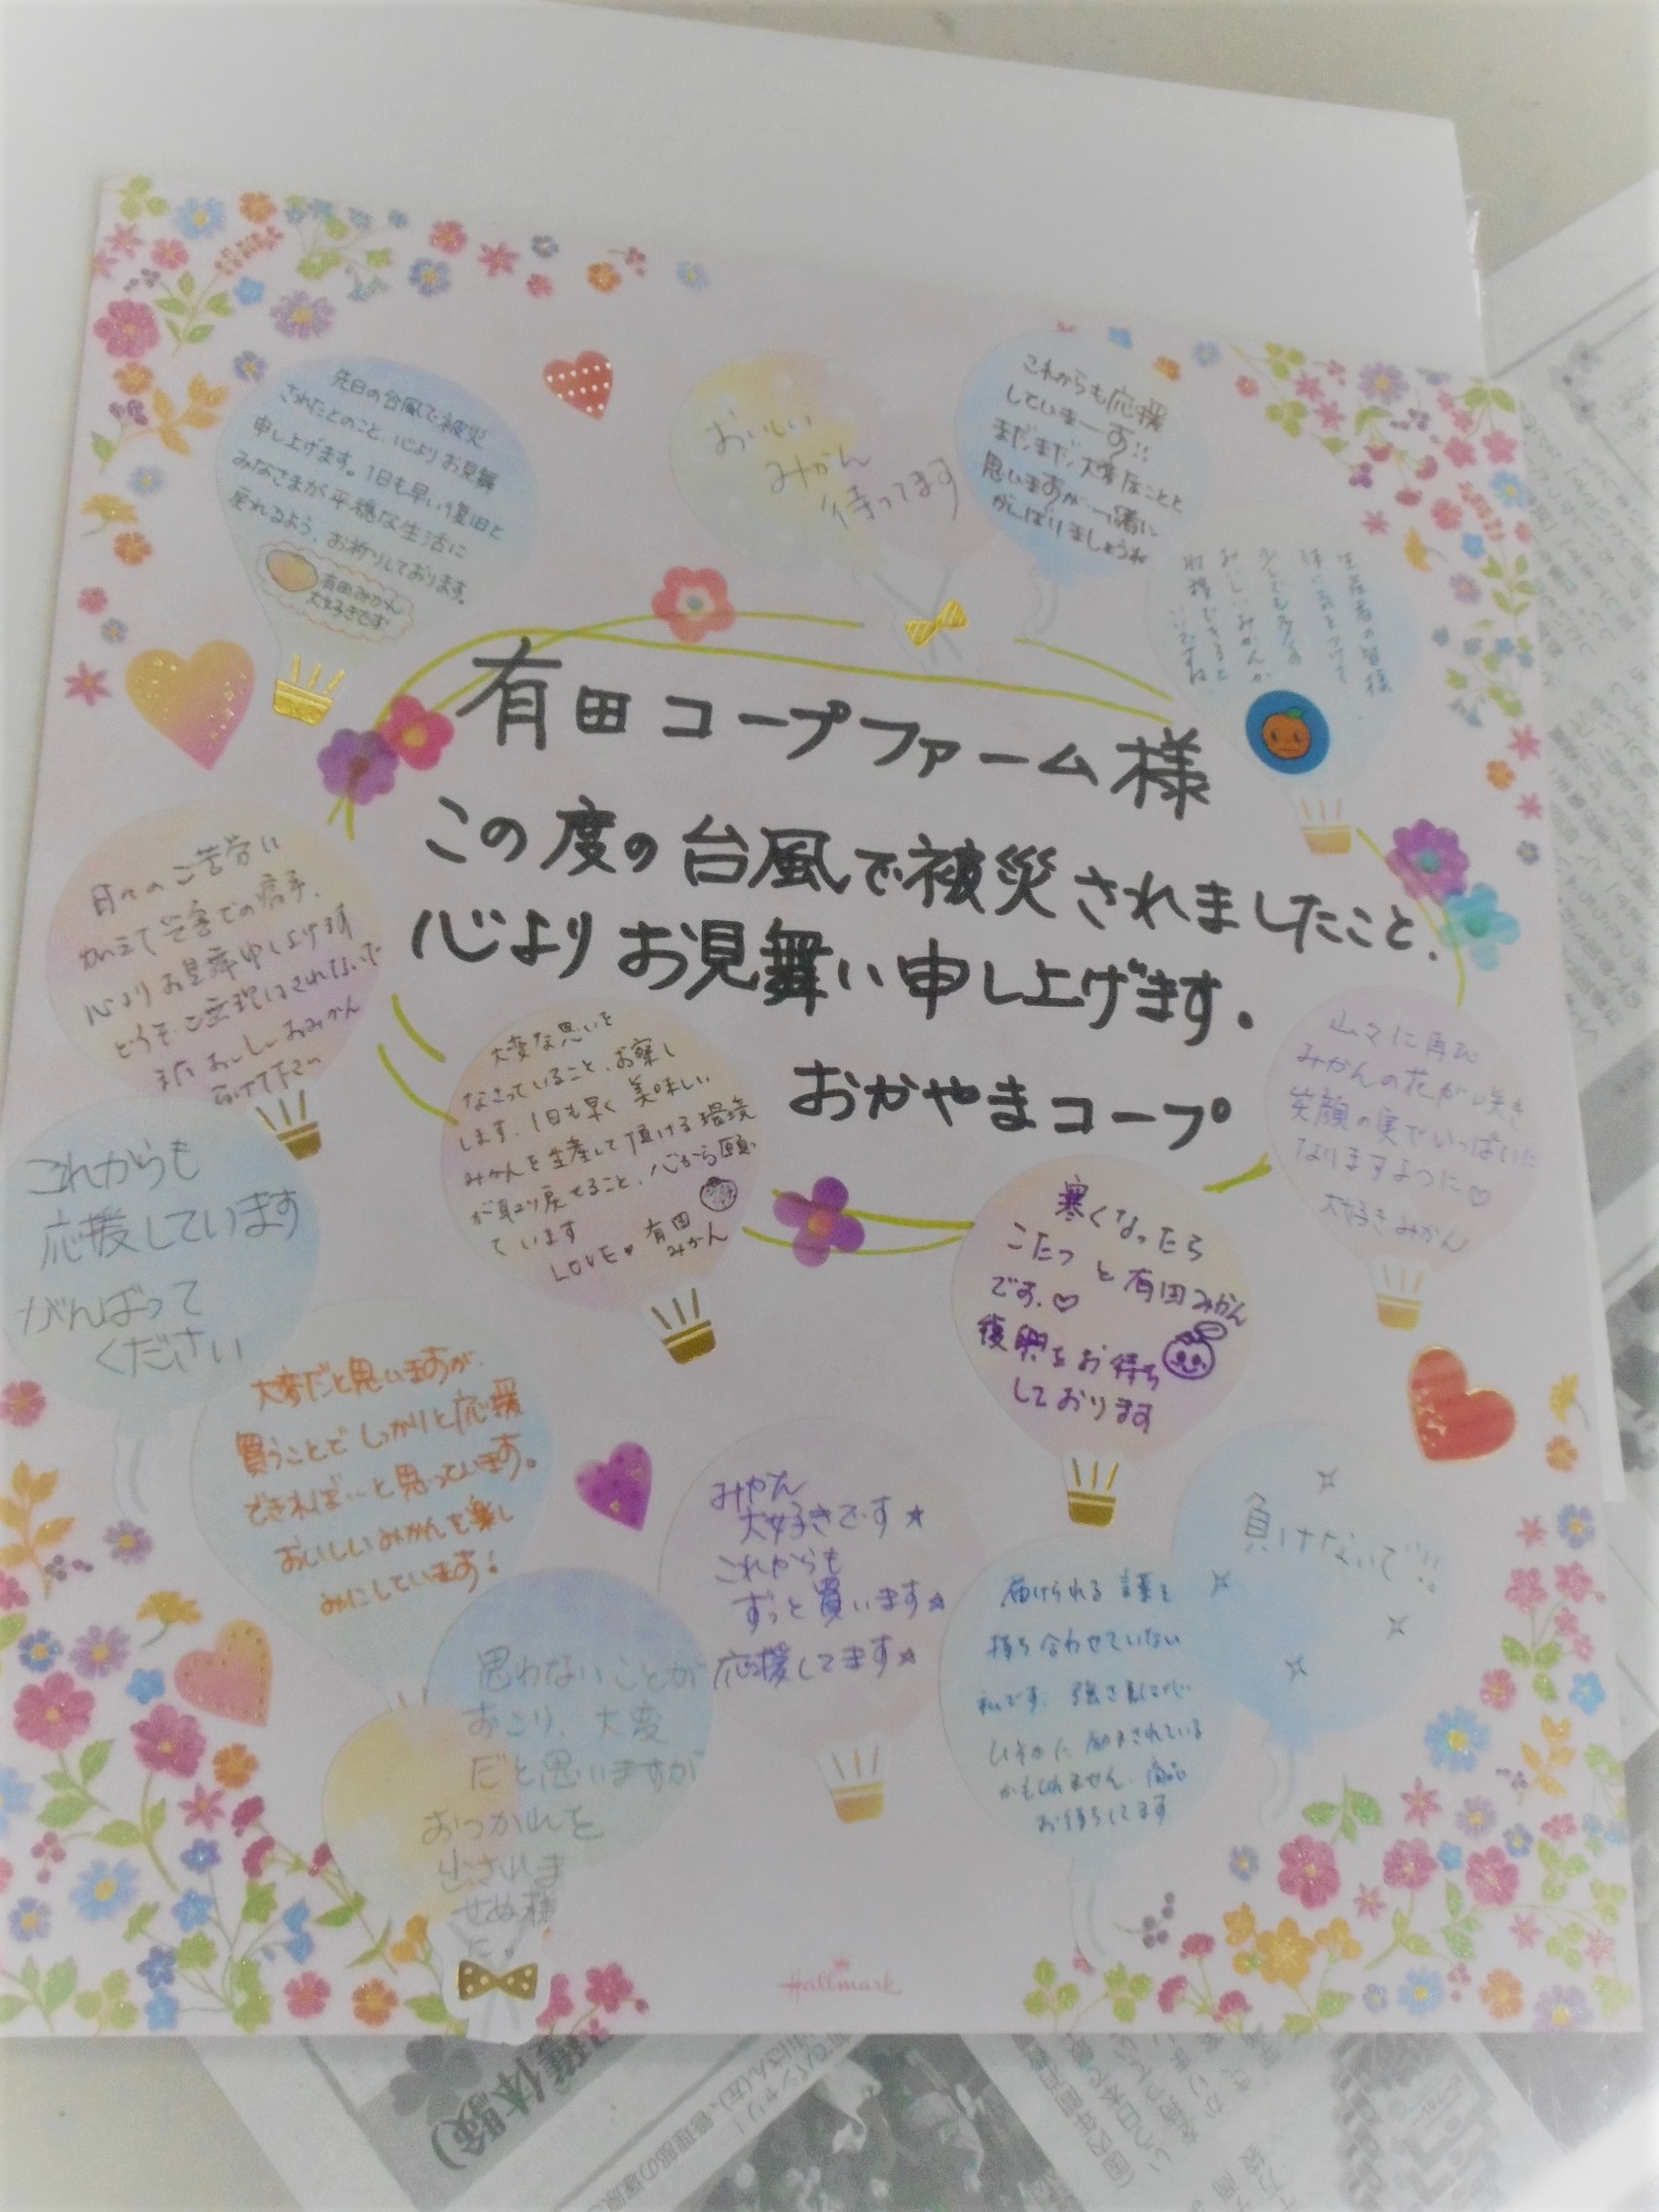 先日の台風で被災
されたとのこと、心よりお見舞
申し上げます。1日も早い復旧と
みなさまが平穏な生活に
戻れるよう、お祈りしております。
有田みかん
大好きです
おいしい
みかん
待ってます
これからも応援
していまーす!!
まだまだ大変なことと
思いますが、一緒に
がんばりましょうね
生産者の皆様
体に気をつけて
少しでも多くの
おいしいみかんが
収穫できると
いいですね
有田コープファーム様
この度の台風で被災されましたこと、
心よりお見舞い申し上げます。
おかやまコープ
日々のご苦労に
加えて災害での痛手、
心よりお見舞申し上げます
どうぞご無理はされないで
またおいしいおみかん
届けて下さい
大変な思いを
なさっていること、お察し
します。1日も早く美味しい
みかんを生産して頂ける環境
が取り戻せること、心から願っ
ています
LOVE♥有田
みかん
山々に再び
みかんの花が咲き
笑顔の実でいっぱいに
なりますように♡
大好きみかん
これからも
応援しています
がんばって
ください
寒くなったら
こたつと有田みかん
です。♡
復興をお待ち
しております
大変だと思いますが、
買うことでしっかりと応援
できれば…と思っています。
おいしいみかんを楽し
みにしています!
みかん
大好きです☆
これからも
ずっと買います☆
応援してます☆
負けないで!!
届けられる言葉を
持ち合わせていない
私です。
励まされている
かもしれません。商品
お待ちしてます
思わないことが
おこり、大変
だと思いますが
おつかれを
出されま
せぬ様
に。
Hallmark